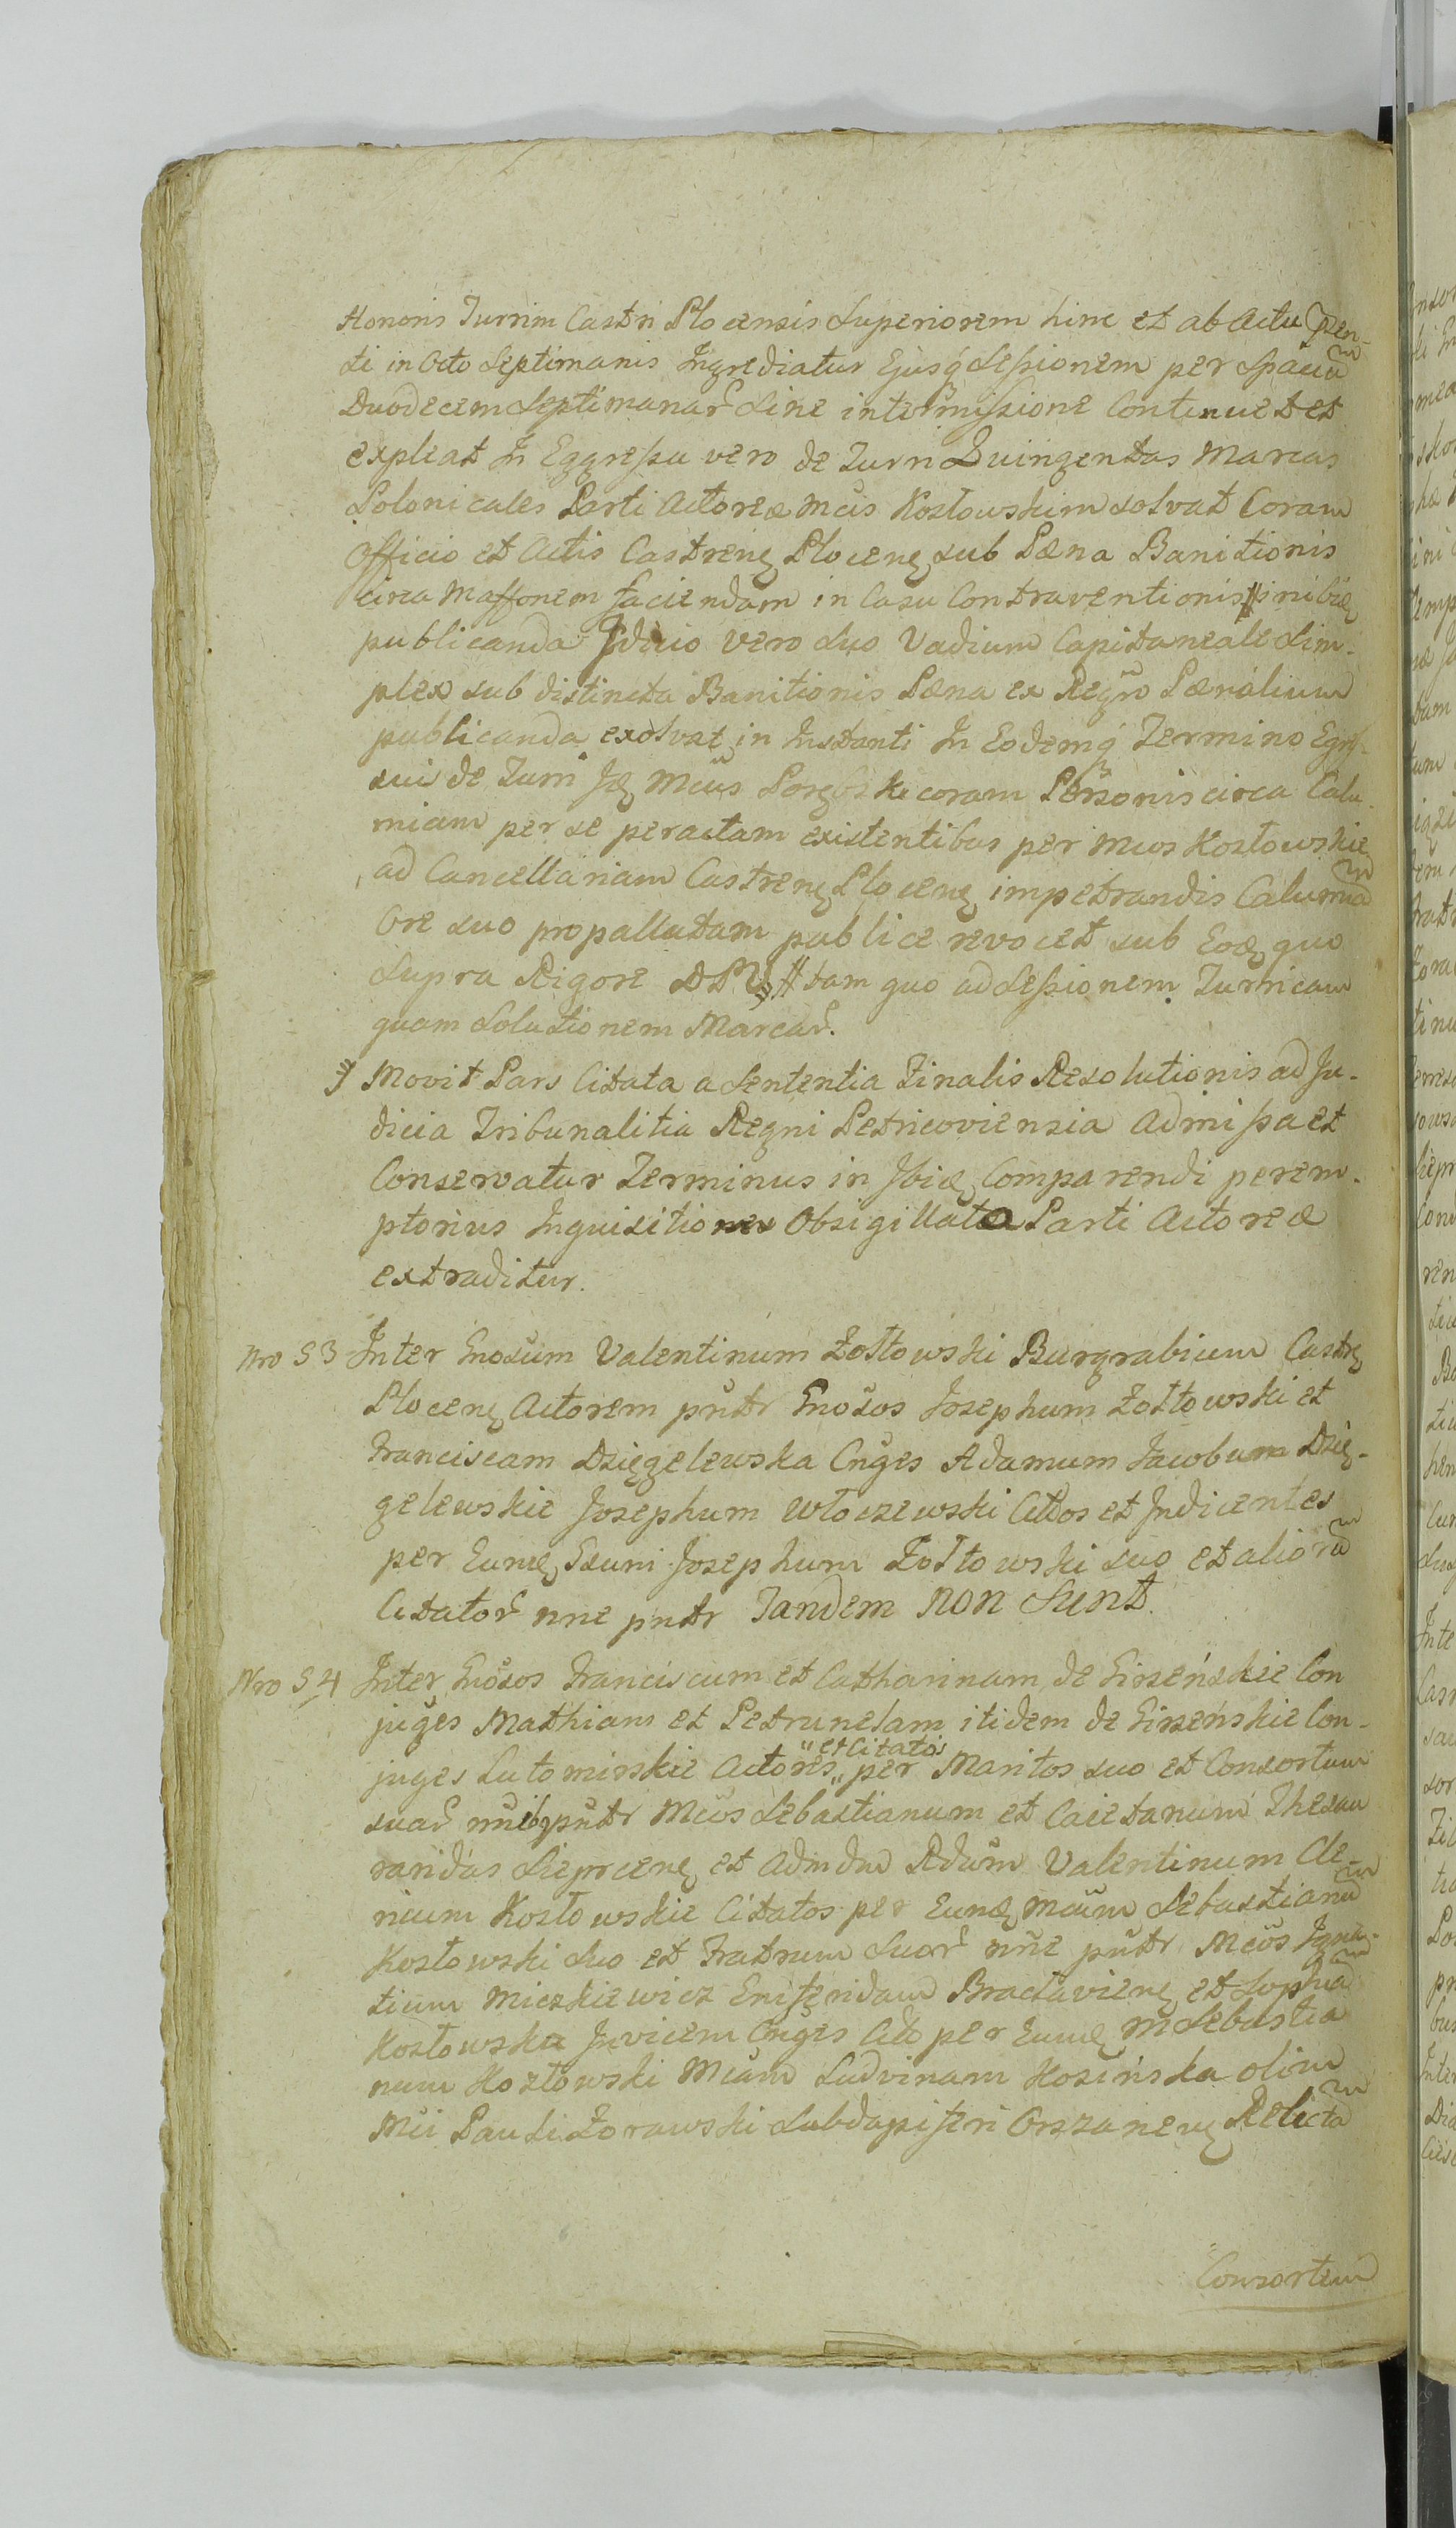 Honoris Turrim Castri Plocensis Superiorem hinc et ab Actu pŕen-
ti in Octo Septimanis Ingrediatur Ejusq̃ Seſsionem per Spaciũ
Duodecem Septimanar̃ Sine intermiſsione Continuet et
expleat In Eggreſsu vero de Turri Quingentas Marcas
Polonicales Parti Actoreæ Mcis Kozłowskim solvat Coram
Officio et Actis Castreneȝ Ploceneȝ sub Pæna Banitionis
circa Maſſonem faciendam in Casu Contraventionis inibiæȝ
publicanda Iudicio vero Suo Vadium Capitaneale Sim-
plex sub distincta Banitionis Pæna ex Regr̃o Pænalium
publicanda exolvat in Instanti In Eodemq̃ Termino Egreſ-
sui de Turri Jdeȝ Mcus Porębski coram Personis circa Calu-
mniam per se peractam existentibus per Mcos Kozłowskie
ad Cancellariam Castreneȝ Ploceneȝ impetrandis Calumniã
Ore suo propallatam publice revocet sub Eodeȝ quo
Supra Rigore DPM tam quo ad Seſsionem Turricam
quam Solutionem Marcar̃.
Movit Pars Citata a Sententia Finalis Resolutionis ad Ju-
dicia Tribunalitia Regni Petricoviensia Admiſsa et
Conservatur Terminus in Ibideȝ Comparendi perem-
ptorius Inquisitiones Obsigillata Parti Actoreæ
extraditur.
Nro 53 Inter Gnosum Valentinum Zołtowski Burgrabium Castreȝ
Ploceneȝ Actorem pñtr Gnosos Josephum Zołtowski et
Franciscam Dzięgelewska Cnges Adamum Jacobum Dzię-
gelewskie Josephum Włoczewski Cittos et Indicentes
per Eumdeȝ Gsum Josephum Zołtowski suo et aliorũ
Citator̃ nne pñtr Tandem NON Sunt.
Nro 54 Inter Gnosos Franciscum et Catharinam de Girzeńskie Con
juges Mathiam et Petrunelam itidem de Girzeńskie Con-
juges Lutomirskie Actores „et Citatos„ per Maritos suo et Consortum
suar̃ nñibȝ pñtr Mcos Sebastianum et Caietanum Thesau
raridas Sieprceneȝ et Admdm Rdum Valentinum Cle-
ricum Kozłowskie Citatos per Eumdeȝ Mcum Sebastianũ
Kozłowski Suo et Fratrum Suor̃ nñe pñtr Mcos Igna-
tium Miczkiewicz Ensiferidam Bractavieneȝ et Sophiã
Kozłowska Invicem Cnges Citt per Eumdeȝ M Sebastia
num Kozłowski Mcam Ludvinam Kosińska olim
Mci Pauli Zorawski Subdapiferi Orszaneneȝ Relictã
Consortem